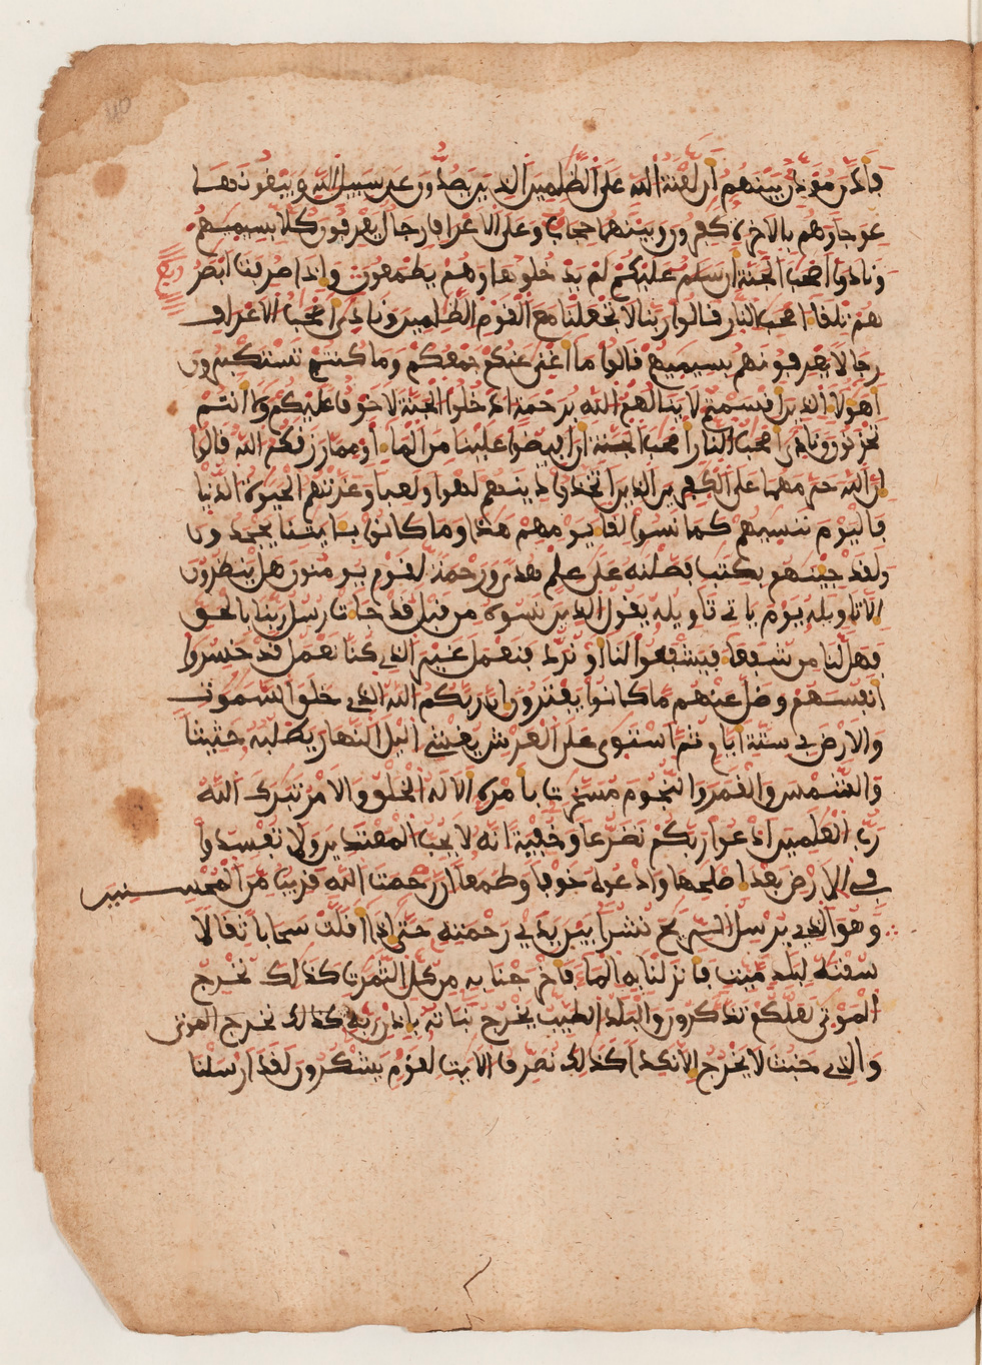 فأذن مؤذن بينهم أن لعنة الله على الظلمين الذين يصدون عن سبيل الله ويبغونها
عوجا وهم بالاخرة كفرون وبينهما حجاب وعلى الاعراف رجال يعرفون كلا بسيميهم
ونادوا اصحب الجنة ان سلم عليكم لم يدخلوها وهم يطمعون واذا صرفت ابصر
هم تلقا اصحب النار قالوا ربنا لا تجعلنا مع القوم الظلمين ونادى اصحب الاعراف
رجالا يعرفونهم بسيميهم قالوا ما اغنى عنكم جمعكم وما كنتم تستكبرون
اهولا الذين اقسمتم لا ينالهم الله برحمة ادخلوا الجنة لا خوف عليكم ولا انتم
تحزنون ونادى اصحب النار اصحب الجنة ان افيضوا علينا من الما او مما رزقكم الله قالوا
ان الله حرمهما على الكفرين الذين اتخذوا دينهم لهوا ولعبا وغرتهم الحيوة الدنيا
فاليوم ننسيهم كما نسوا لقا يومهم هذا وما كانوا بايتنا يجحدون
ولقد جينهم بكتب فصلنه على علم هدى ورحمة لقوم يومنون هل ينظرون
الا تاويله يوم ياتي تاويله يقول الذين نسوه من قبل قد جات رسل ربنا بالحق
فهل لنا من شفعا فيشفعوا لنا او نرد فنعمل غير الذي كنا نعمل قد خسروا
انفسهم وضل عنهم ما كانوا يفترون ان ربكم الله الذي خلق السموت
والارض في ستة ايام ثم استوى على العرش يغشي اليل النهار يطلبه حثيثا
والشمس والقمر والنجوم مسخرت بامره الا له الخلق والامر تبرك الله
رب العلمين ادعوا ربكم تضرعا وخفية انه لا يحب المعتدين ولا تفسدوا
في الارض بعد اصلحها وادعوه خوفا وطمعا ان رحمت الله قريب من المحسنين
وهو الذي يرسل الريح نشرا بين يدي رحمته حتى اذا اقلت سحابا ثقالا
سقنه لبلد ميت فانزلنا به الما فاخرجنا به من كل الثمرت كذلك نخرج
الموتى لعلكم تذكرون والبلد الطيب يخرج نباته باذن ربه كذلك نخرج الموتى
والذي خبث لا يخرج الا نكدا كذلك نصرف الايت لقوم يشكرون لقد ارسلنا